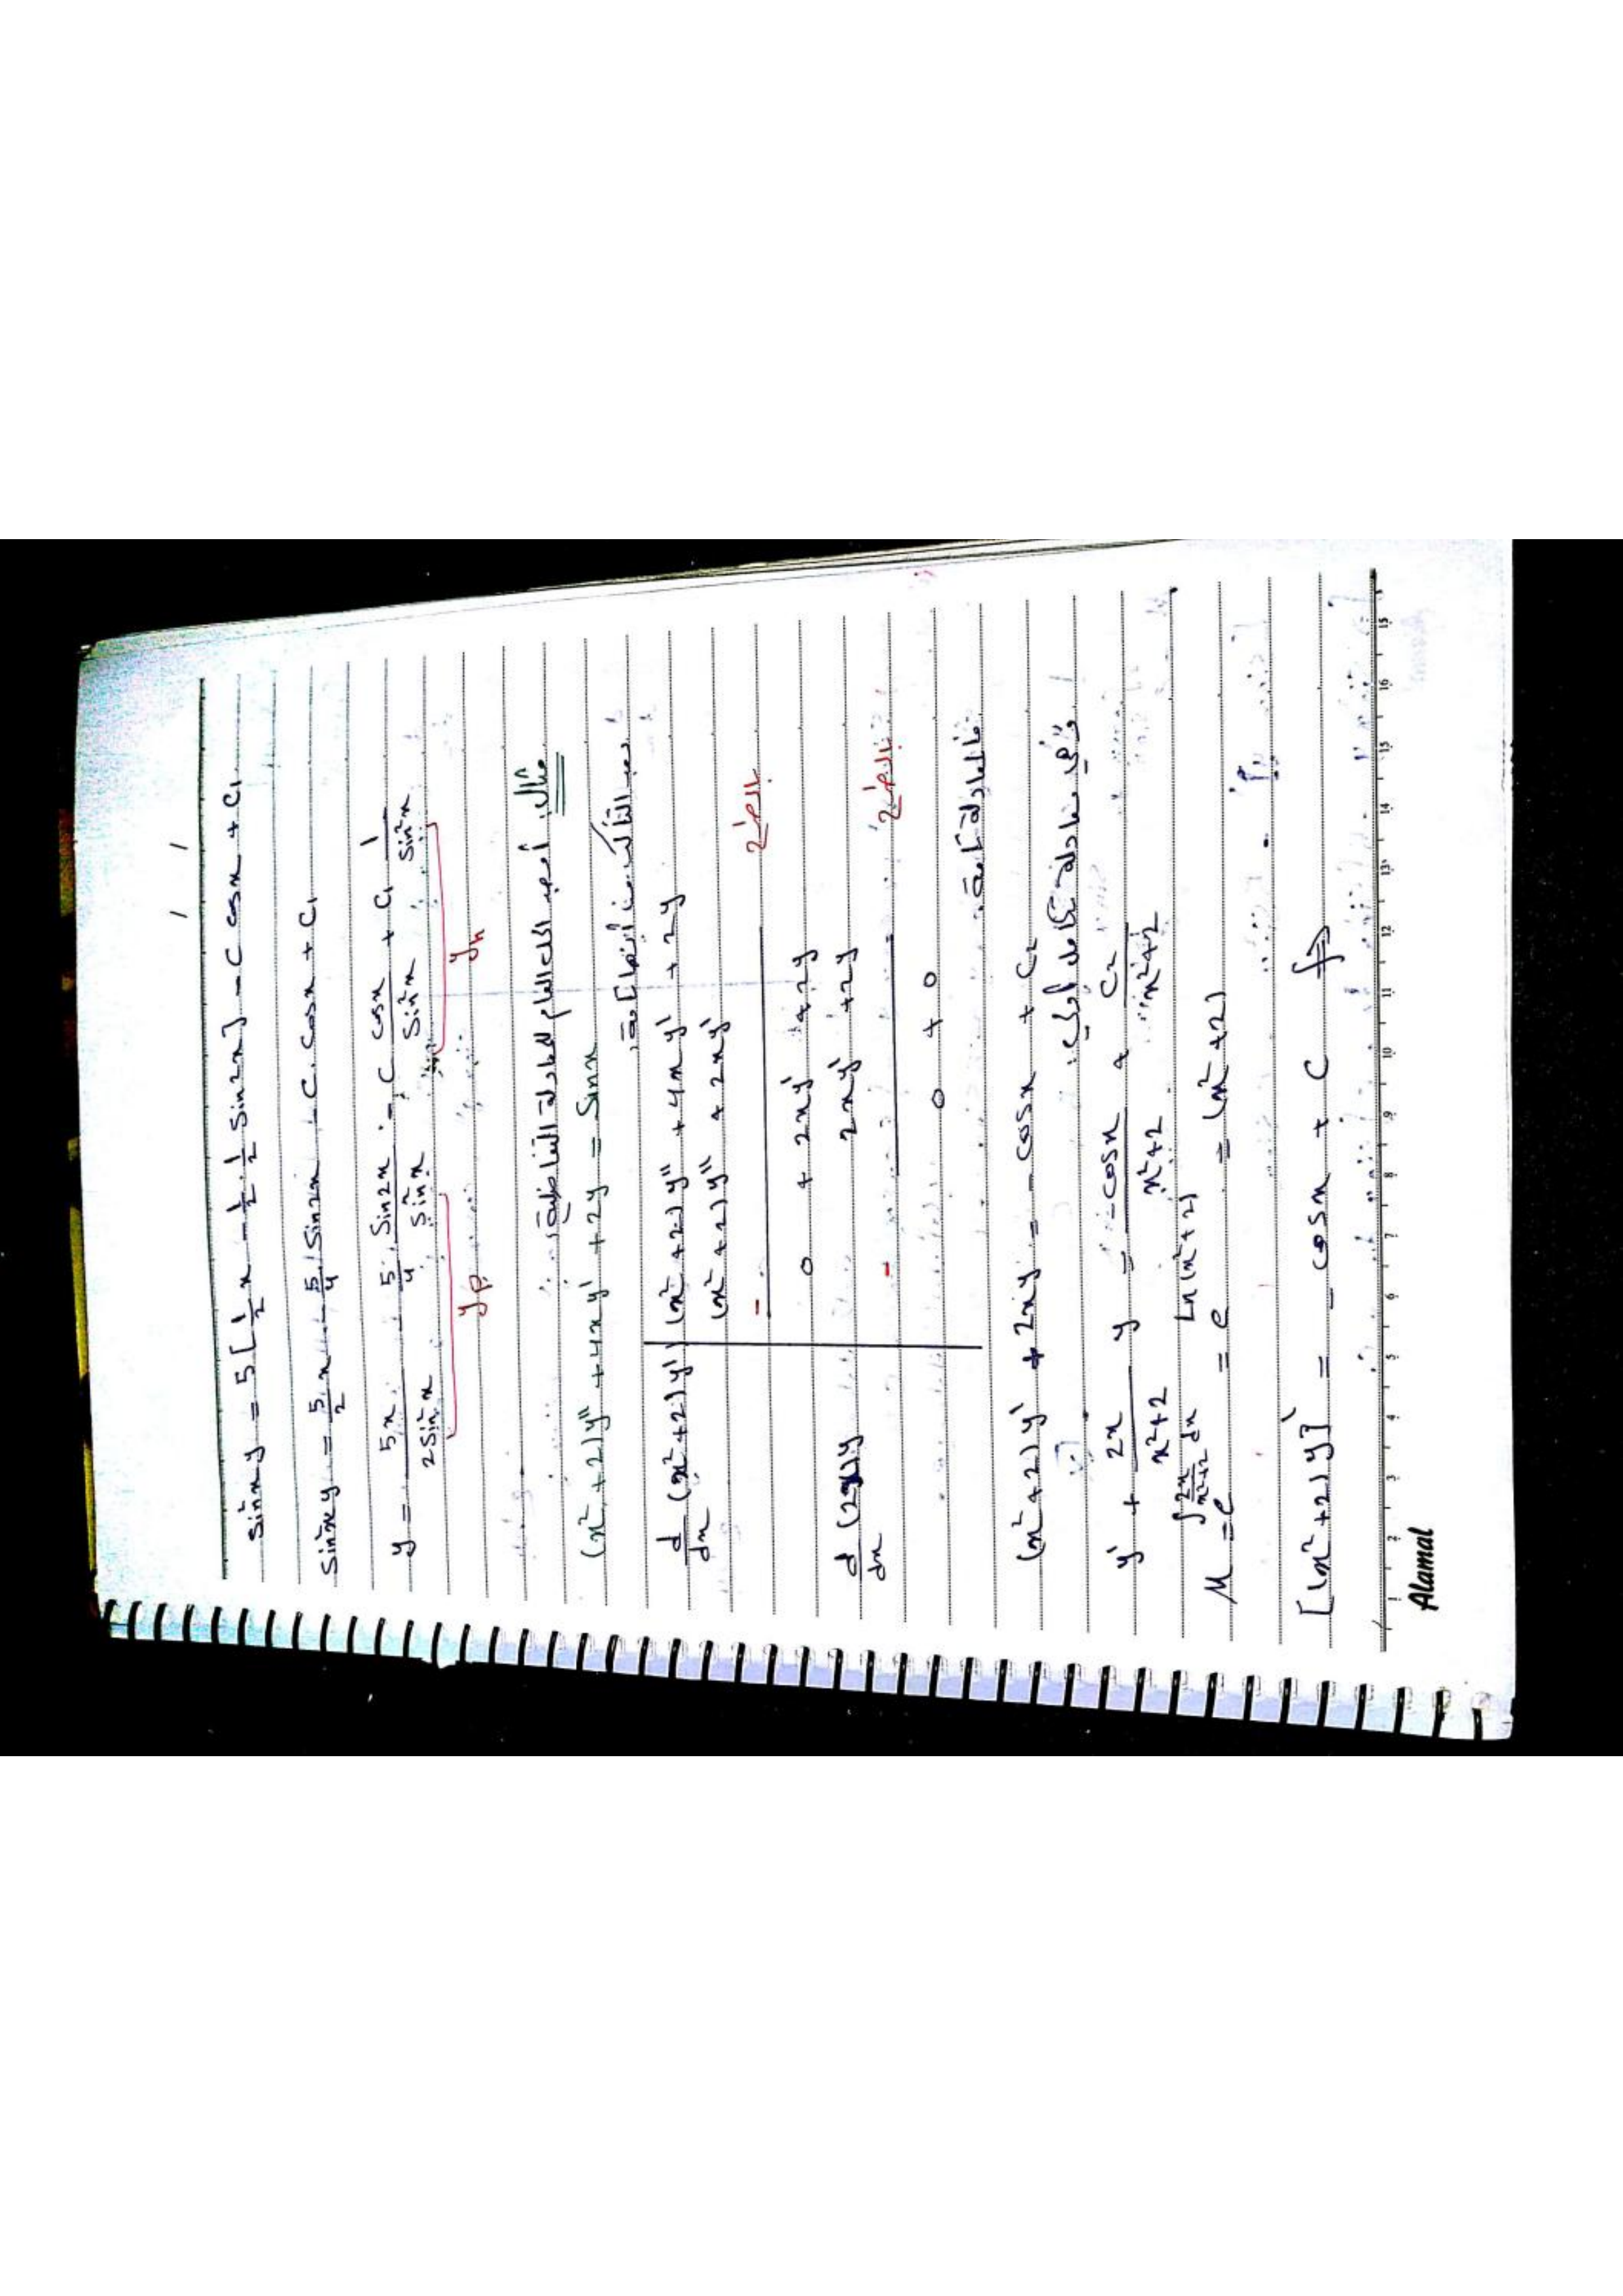 sin²x y = 5 [ 1/2 x - 1/2 . 1/2 sin2x ] - C cosx + C₁
sin²x y = 5/2 x - 5/4 sin2x - C . cosx + C₁
y = 5x / 2sin²x - 5/4 sin2x / sin²x - C cosx / sin²x + C₁ 1 / sin²x
yp yh
مثال: أوجد الحل العام للمعادلة التفاضلية:
(x² + 2) y'' + 4x y' + 2y = sinx
يجب التأكد من أنها تامة.
d/dx (x²+2) y') (x² + 2) y'' + 4x y' + 2y
(x² + 2) y'' + 2x y'
- بالطرح
0 + 2xy' + 2y
d/dx (2x) y 2xy' + 2y
- بالطرح
0 + 0
فالمعادلة تامة.
(x² + 2) y' + 2xy = - cosx + C₂
وهي معادلة تكامل
y' + 2x / x²+2 y = -cosx / x²+2 + C₂ / x²+2
M = e^∫ 2x/x²+2 dx = e^Ln(x²+2) = (x² + 2)
[(x² + 2) y]' = - cosx + C
1 2 3 4 5 6 7 8 9 10 11 12 13 14 15 16 15
Alamal